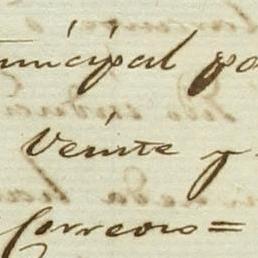 unicipal po
Veinte y
Correos=